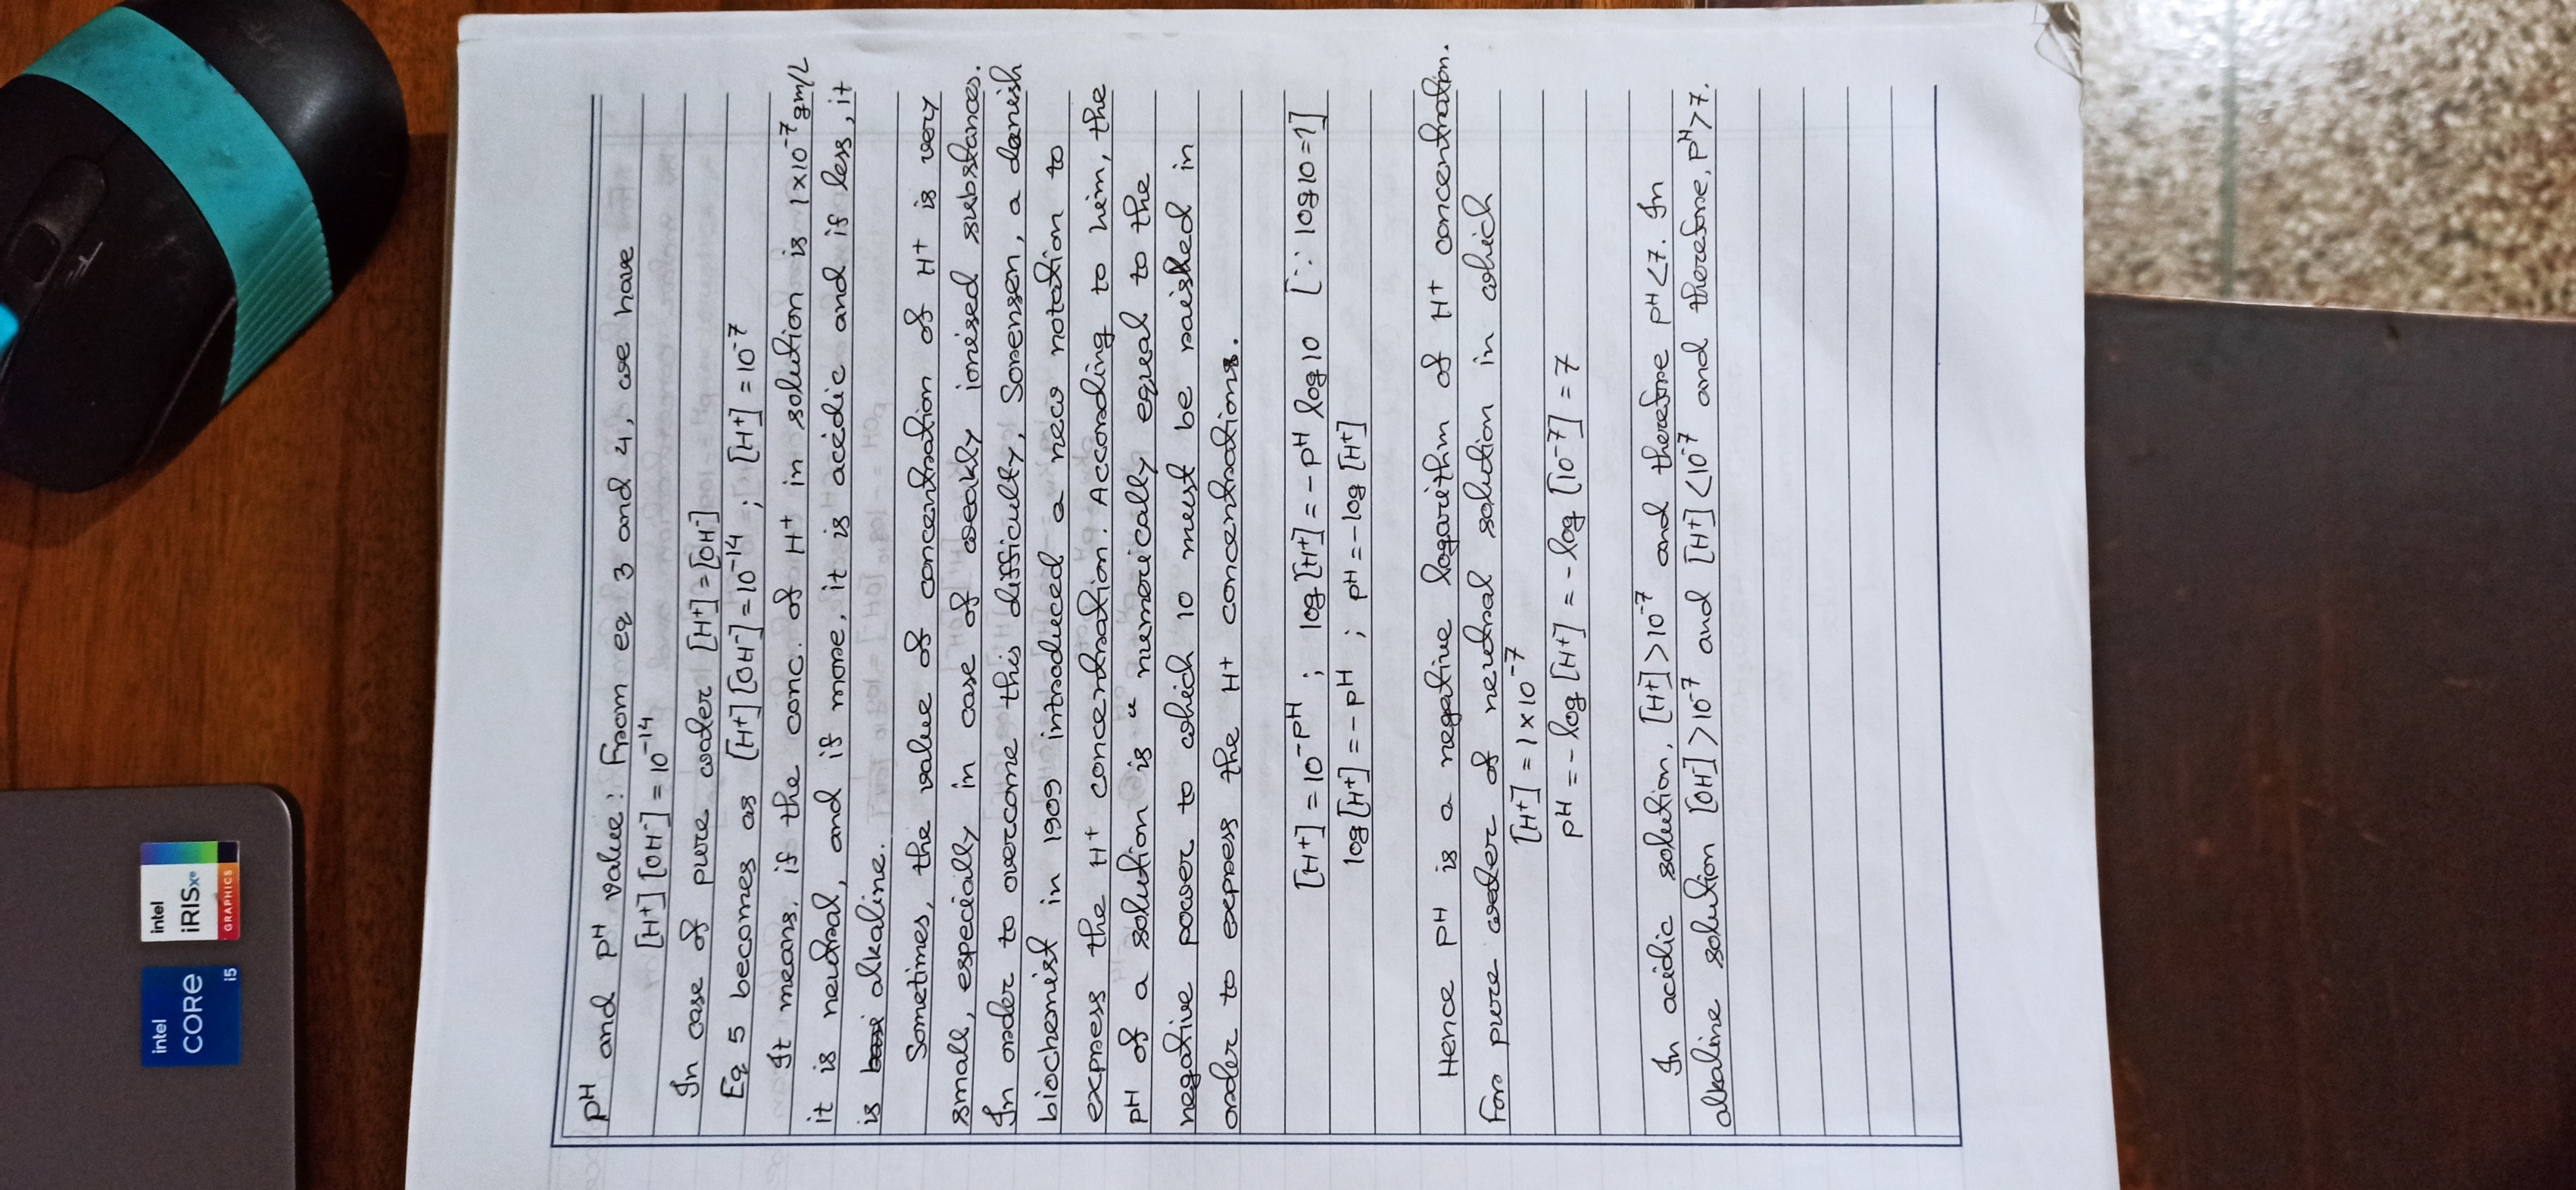 pH and pH value: From eq 3 and 4, we have
[H+] [OH-] = 10-14
In case of pure water [H+] = [OH-]
Eq 5 becomes as [H+] [OH-] = 10-14 ; [H+] = 10-7
It means, if the conc. of H+ in solution is 1×10-7 gm/L
it is neutral, and if more, it is acidic and if less, it
is basi alkaline.
Sometimes, the value of concentration of H+ is very
small, especially in case of weakly ionised substances.
In order to overcome this difficulty, Sorensen, a danish
biochemist in 1909 introduced a new notation to
express the H+ concentration. According to him, the
pH of a solution is " numerically equal to the
negative power to which 10 must be raished in
order to express the H+ concentrations.
[H+] = 10-pH ; log [H+] = - pH log 10 [∵ log 10 = 1]
log [H+] = - pH ; pH = - log [H+]
Hence pH is a negative logarithm of H+ concentration.
For pure water of neutral solution in which
[H+] = 1 × 10-7
pH = - log [H+] = - log [10-7] = 7
In acidic solution, [H+] > 10-7 and therefore pH < 7. In
alkaline solution [OH-] > 10-7 and [H+] < 10-7 and therefore, pH > 7.
intel
CORE
i5
intel
iRISxe
GRAPHICS